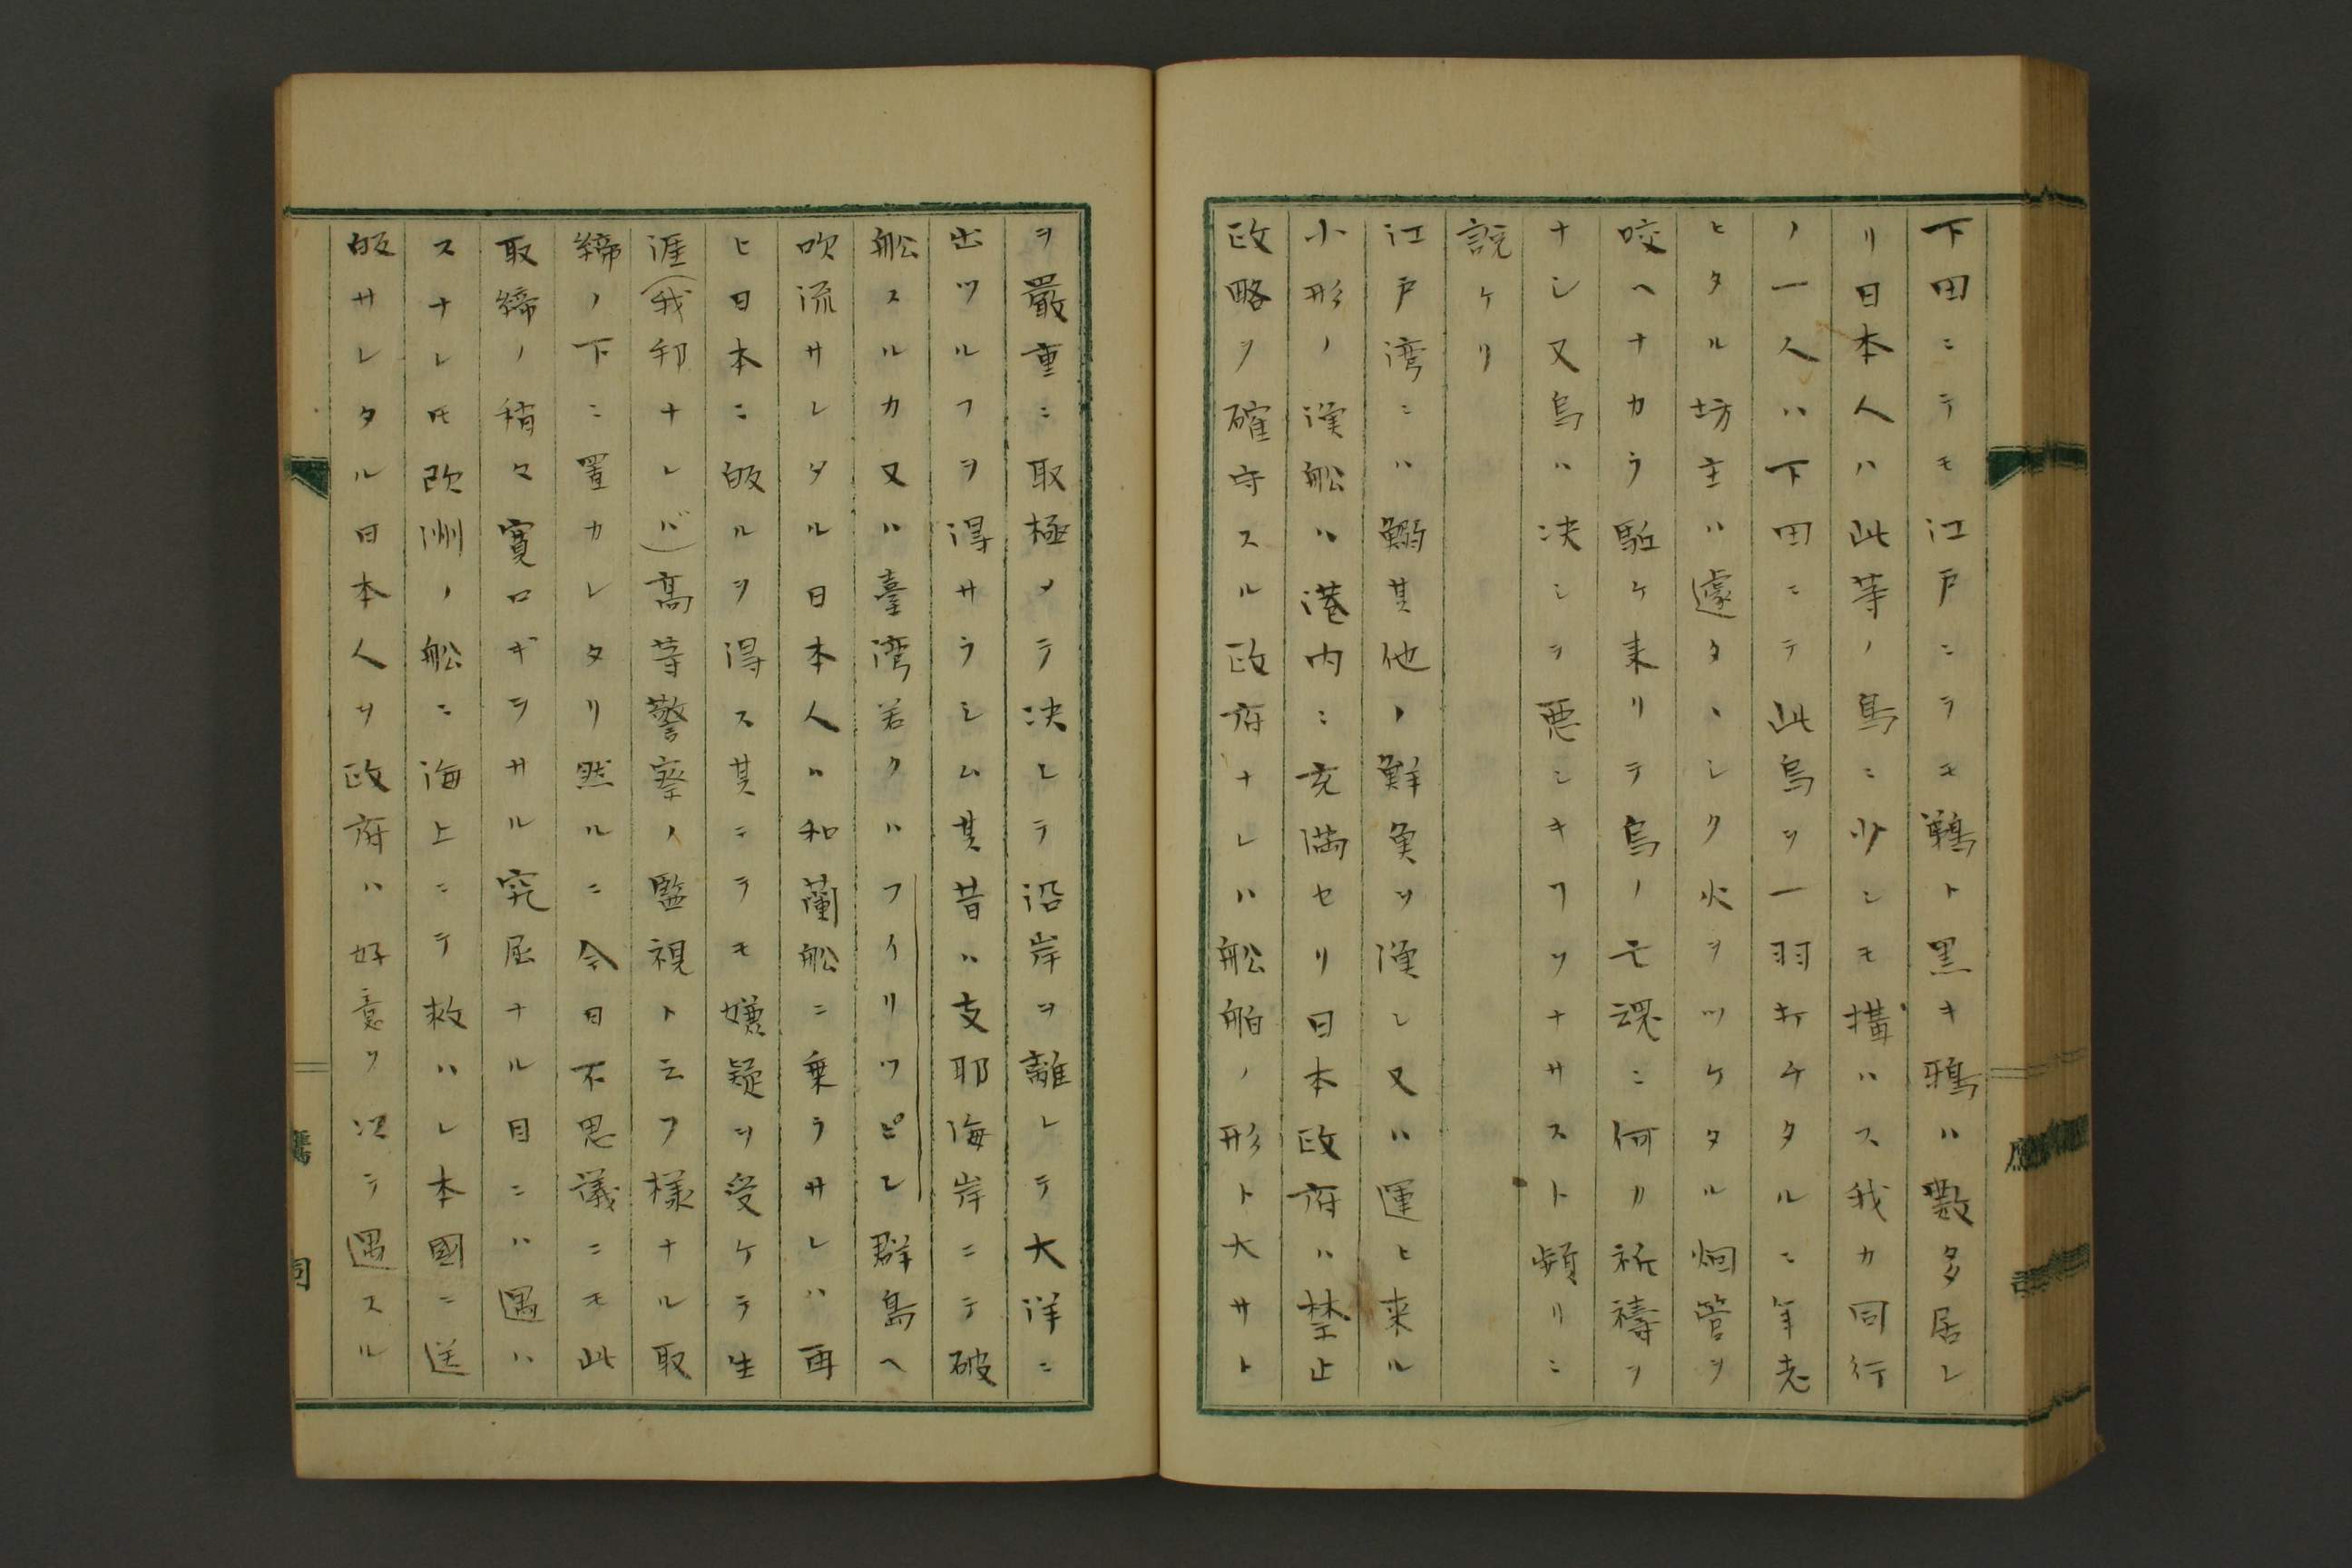 下田ニテモ江戸ニテモ鶏ト黒キ鴉ハ數多居レ
リ日本人ハ此等ノ鳥ニ少シモ搆ハス我カ同行
ノ一人ハ下田ニテ此鳥ヲ一羽打チタルニ年老
ヒタル坊主ハ遽タヽシク火ヲツケタル烟管ヲ
咬ヘナカラ駈ケ来リテ烏ノ亡魂ニ何カ祈禱ヲ
ナシ又烏ハ决シテ悪シキ丆ヲナサスト頻リニ
説ケリ
江戸湾ニハ鰯其他ノ鮮魚ヲ漁シ又ハ運ヒ来ル
小形ノ漁舩ハ港内ニ充満セリ日本政府ハ禁止
政略ヲ確守スル政府ナレハ舩舶ノ形ト大サト
ヲ嚴重ニ取極メテ决シテ沿岸ヲ離レテ大洋ニ
出ツル丆ヲ得サラシム其昔ハ支耶海岸ニテ破
舩スルカ又ハ臺湾若クハフイリツピン群島ヘ
吹流サレタル日本人ハ和蘭舩ニ乗ラサレハ再
ヒ日本ニ皈ルヲ得ス其ニテモ嫌疑ヲ受ケテ生
涯(我邦ナレバ)高等警察ノ監視ト云フ様ナル取
締ノ下ニ置カレタリ然ルニ今日不思議ニモ此
取締ノ稍々寛ロギテサル究屈ナル目ニハ遇ハ
スナレ𪜈欧洲ノ舩ニ海上ニテ救ハレ本國ニ送
皈サレタル日本人ヲ政府ハ好意ヲ以テ遇スル